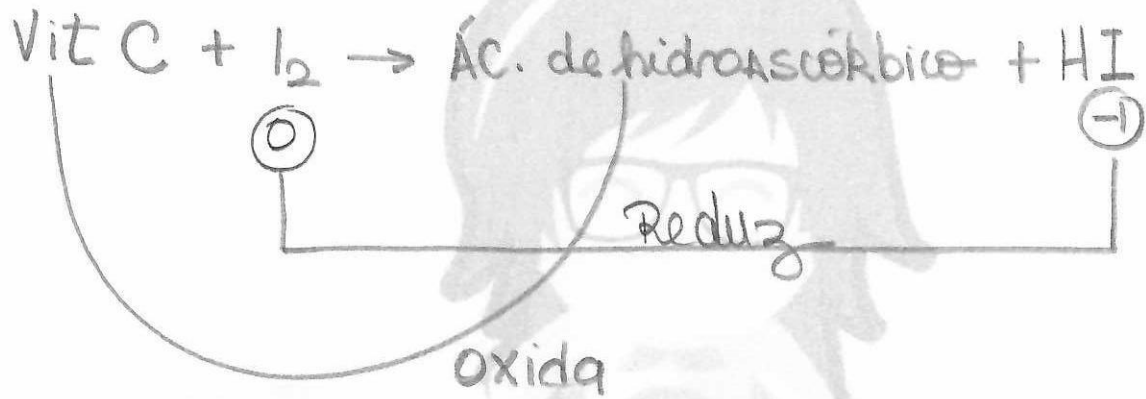 Vit C + I₂ → ÁC. dehidroascórbico + HI
0 -1
Reduz
oxida